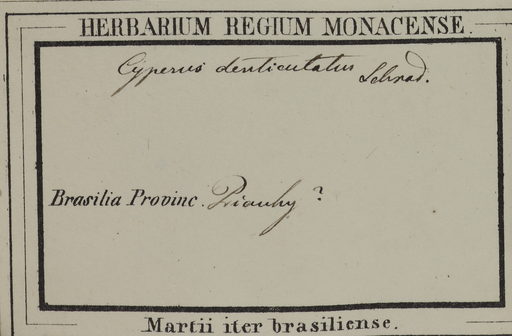 HERBARIUM REGIUM MONACENSE.
Cyperus denticulatus Schrad.
Brasilia Provinc. Piauhy?
Martii iter brasiliense.